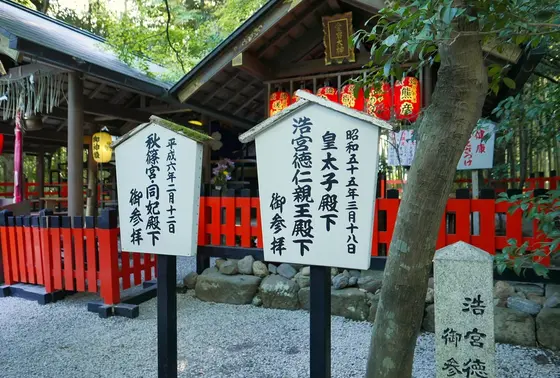 平成六年二月十二日
秋篠宮同妃殿下
御参拝
昭和五十五年三月十八日
皇太子殿下
浩宮徳仁親王殿下
御参拝
浩宮徳
御参
健康